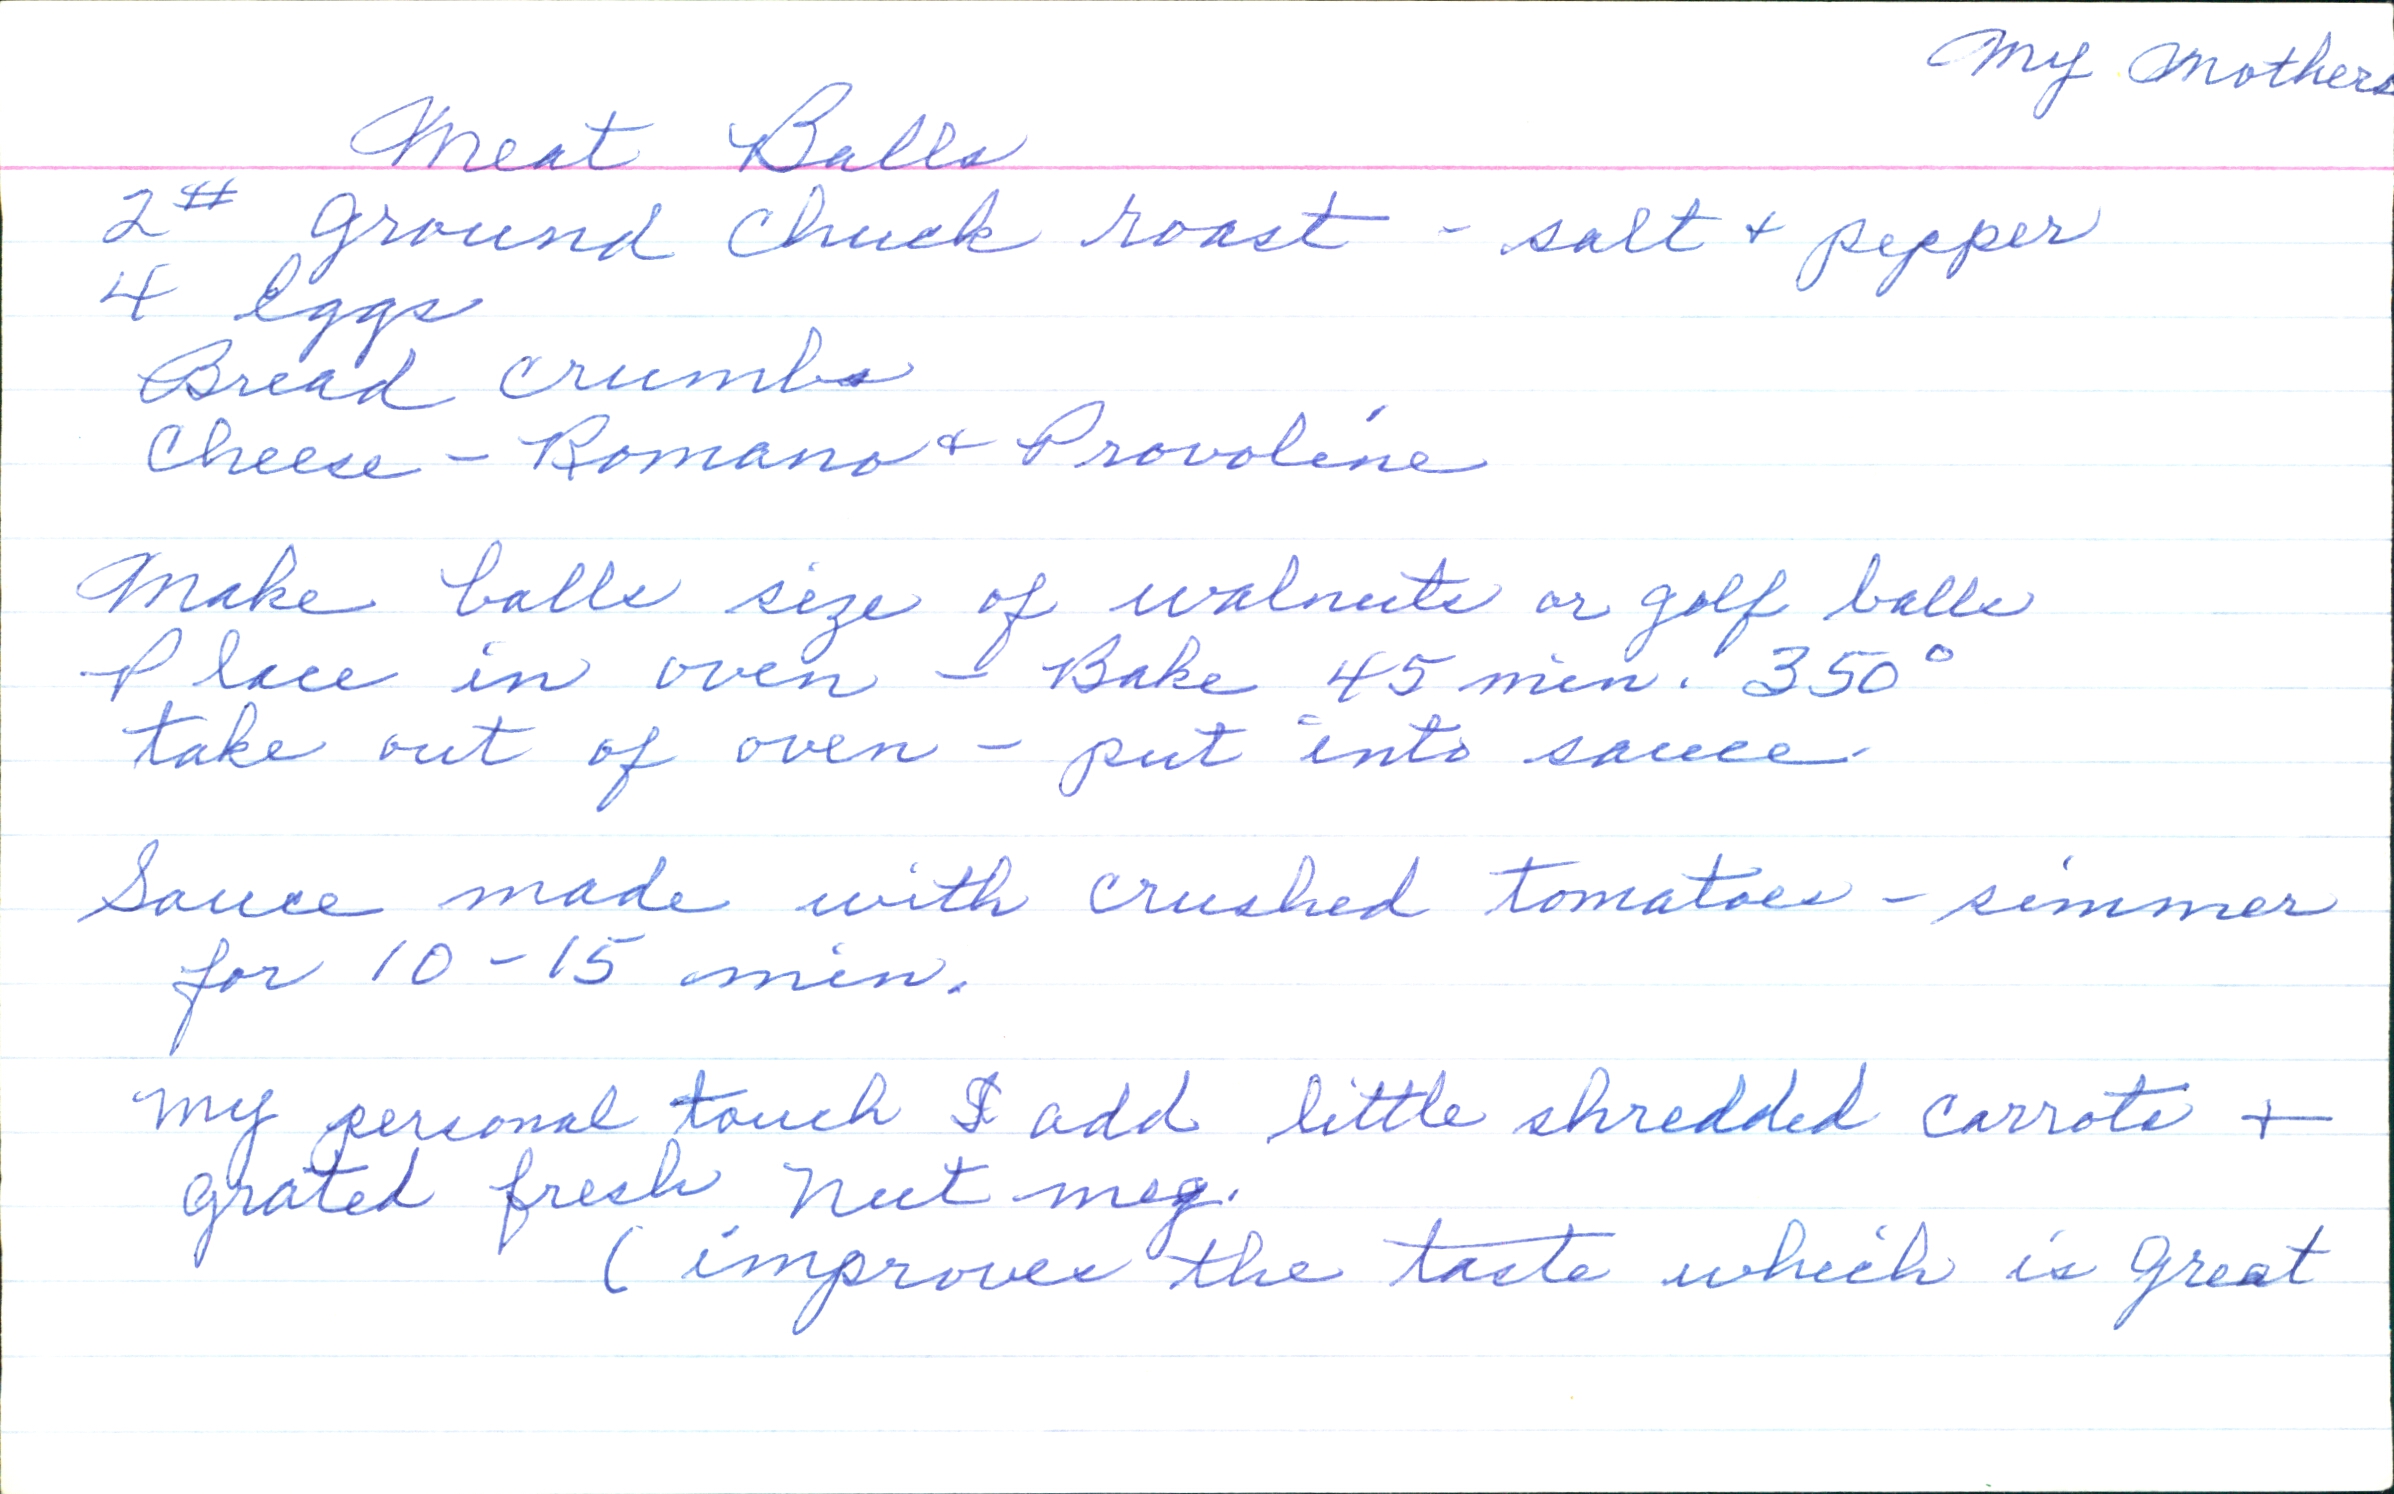 My Mothers
Meat Balls
2# Ground Chuck roast - salt + pepper
4 Eggs
Bread crumbs
Cheese - Romano + Provoline
Make balls size of walnuts or golf balls
Place in oven - Bake 45 min. 350°
take out of oven - put into sauce
Sauce made with crushed tomatoes - simmer
for 10-15 min.
My personal touch I add little shredded carrots +
grated fresh Nut meg.
( improves the taste which is great